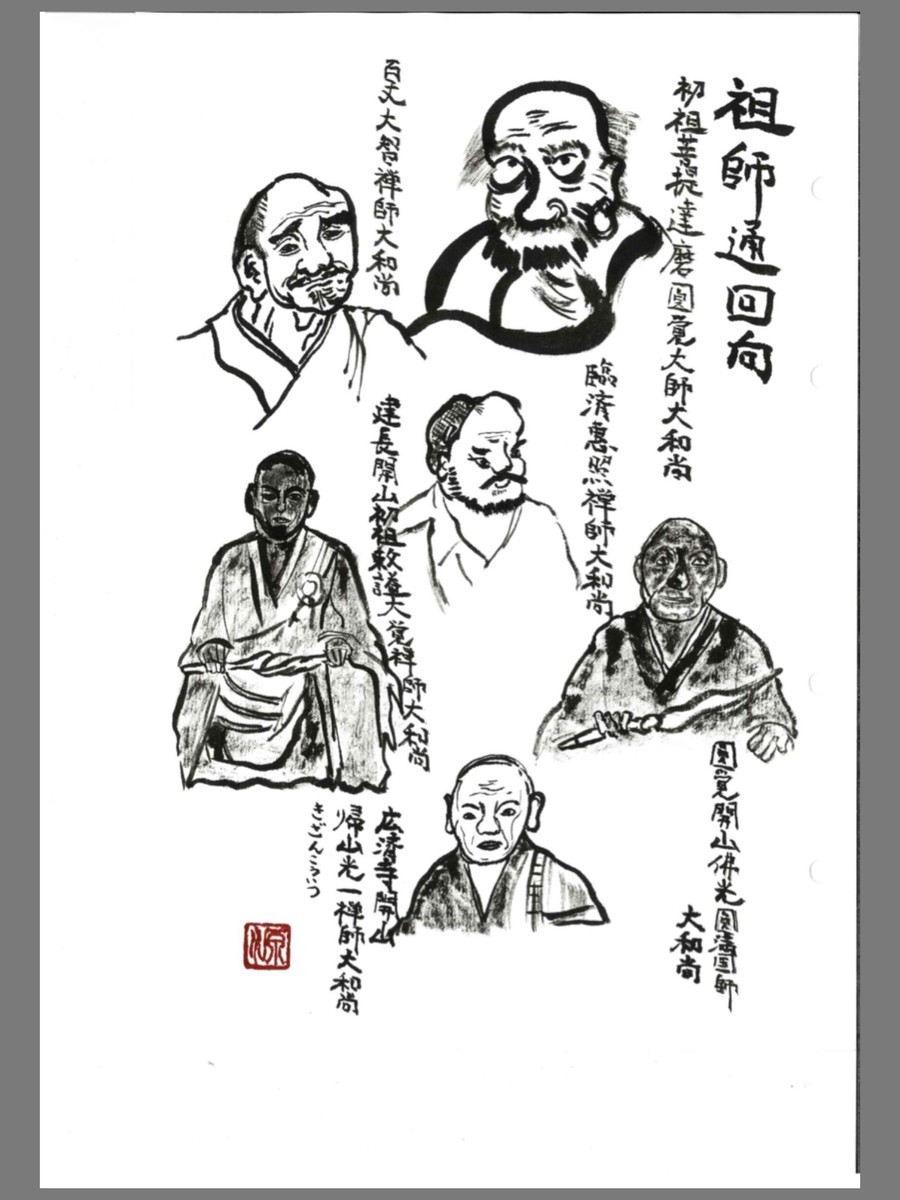 祖師通回向
初祖菩提達磨圓覚大師大和尚
百丈大智禅師大和尚
臨済惠照禅師大和尚
建長開山初祖敕諡大覚禅師大和尚
圓覚開山佛光圓満国師
大和尚
広済寺開山
帰山光一禅師大和尚
きざんこういつ